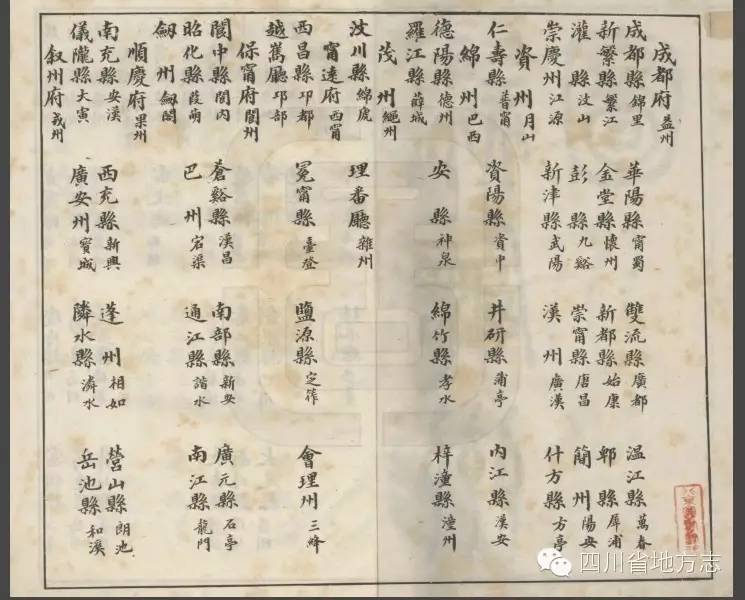 成都府 益州
成都縣 錦里 華陽縣 甯蜀 雙流縣 廣都 温江縣 萬春
新繁縣 繁江 金堂縣 懷州 新都縣 始康 郫縣 犀浦
灌縣 汶山 彭縣 九谿 崇甯縣 唐昌 簡州 陽安
崇慶州 江源 新津縣 武陽 漢州 廣漢 什方縣 方亭
資州 月山
仁壽縣 普甯 資陽縣 資中 井研縣 蒲亭 内江縣 漢安
綿州 巴西
德陽縣 德州 安縣 神泉 綿竹縣 孝水 梓潼縣 潼州
羅江縣 薛城
茂州 繩州
汶川縣 綿虒 理番廳 維州
甯遠府 西甯
西昌縣 邛都 冕甯縣 臺登 鹽源縣 定筰 會理州 三絳
越嶲廳 邛部
保甯府 閬州
閬中縣 閬内 蒼谿縣 漢昌 南部縣 新安 廣元縣 石亭
昭化縣 葭萌 巴州 宕渠 通江縣 諾水 南江縣 龍門
劍州 劍閣
順慶府 果州
南充縣 安漢 西充縣 新興 蓬州 相如 營山縣 朗池
儀隴縣 大寅 廣安州 賨城 隣水縣 潾水 岳池縣 和溪
叙州府 戎州
四川省地方志